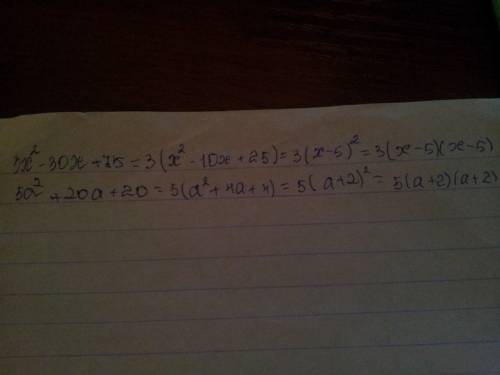 3x² - 30x + 75 = 3(x² - 10x + 25) = 3(x-5)² = 3(x-5)(x-5)
5a² + 20a + 20 = 5(a² + 4a + 4) = 5(a+2)² = 5(a+2)(a+2)